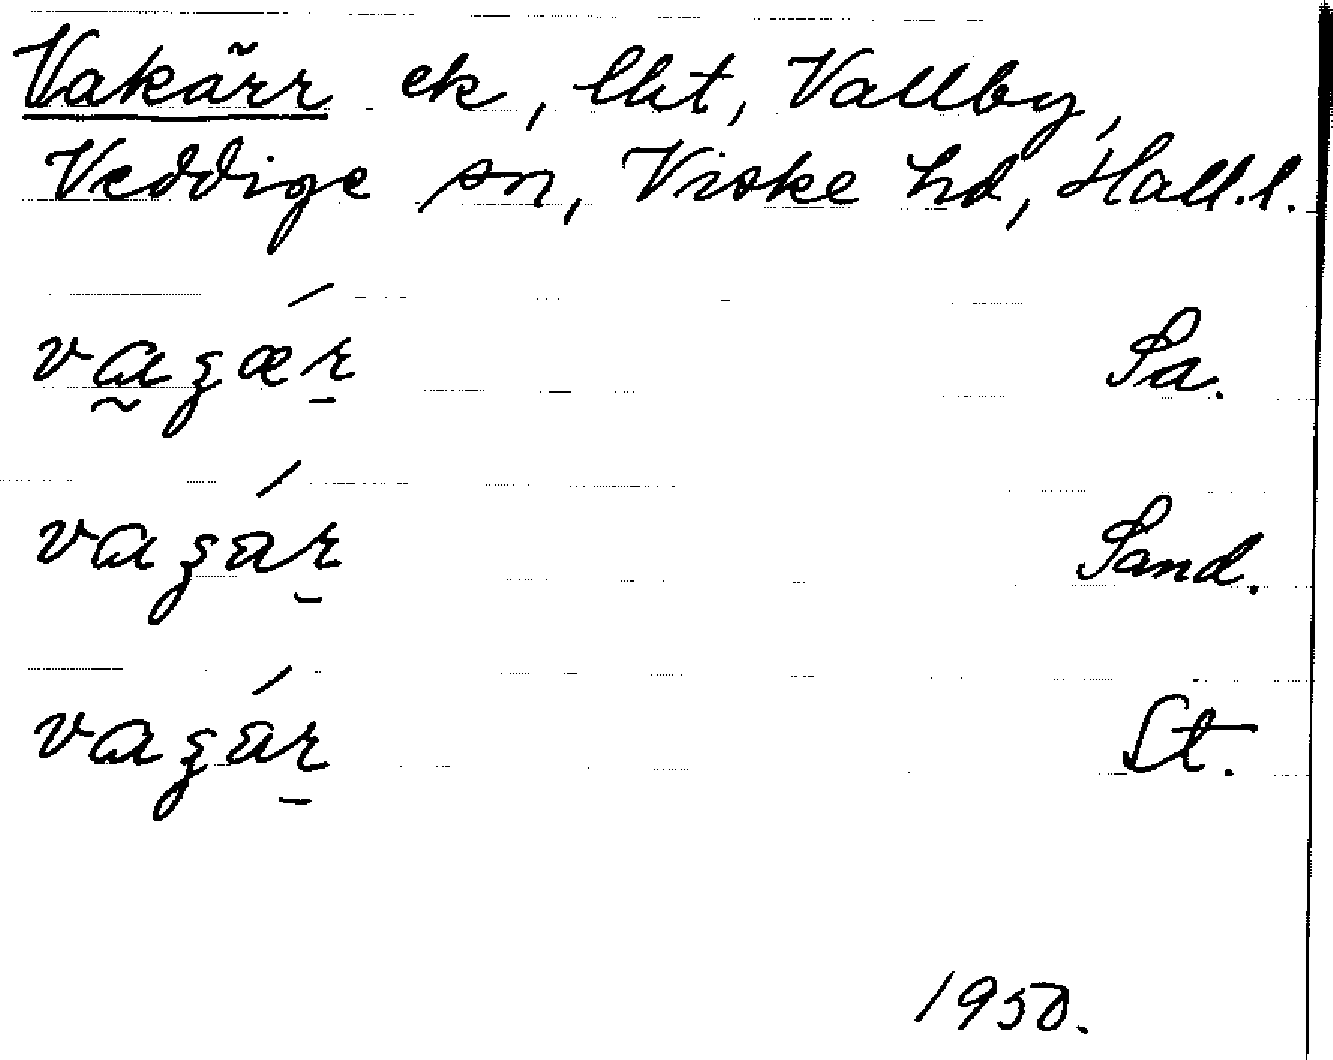 Vakärr ek, lht, Vallby,
Veddige sn, Viske hd, Hall.l.
Sa.
Sand.
St.
1950.